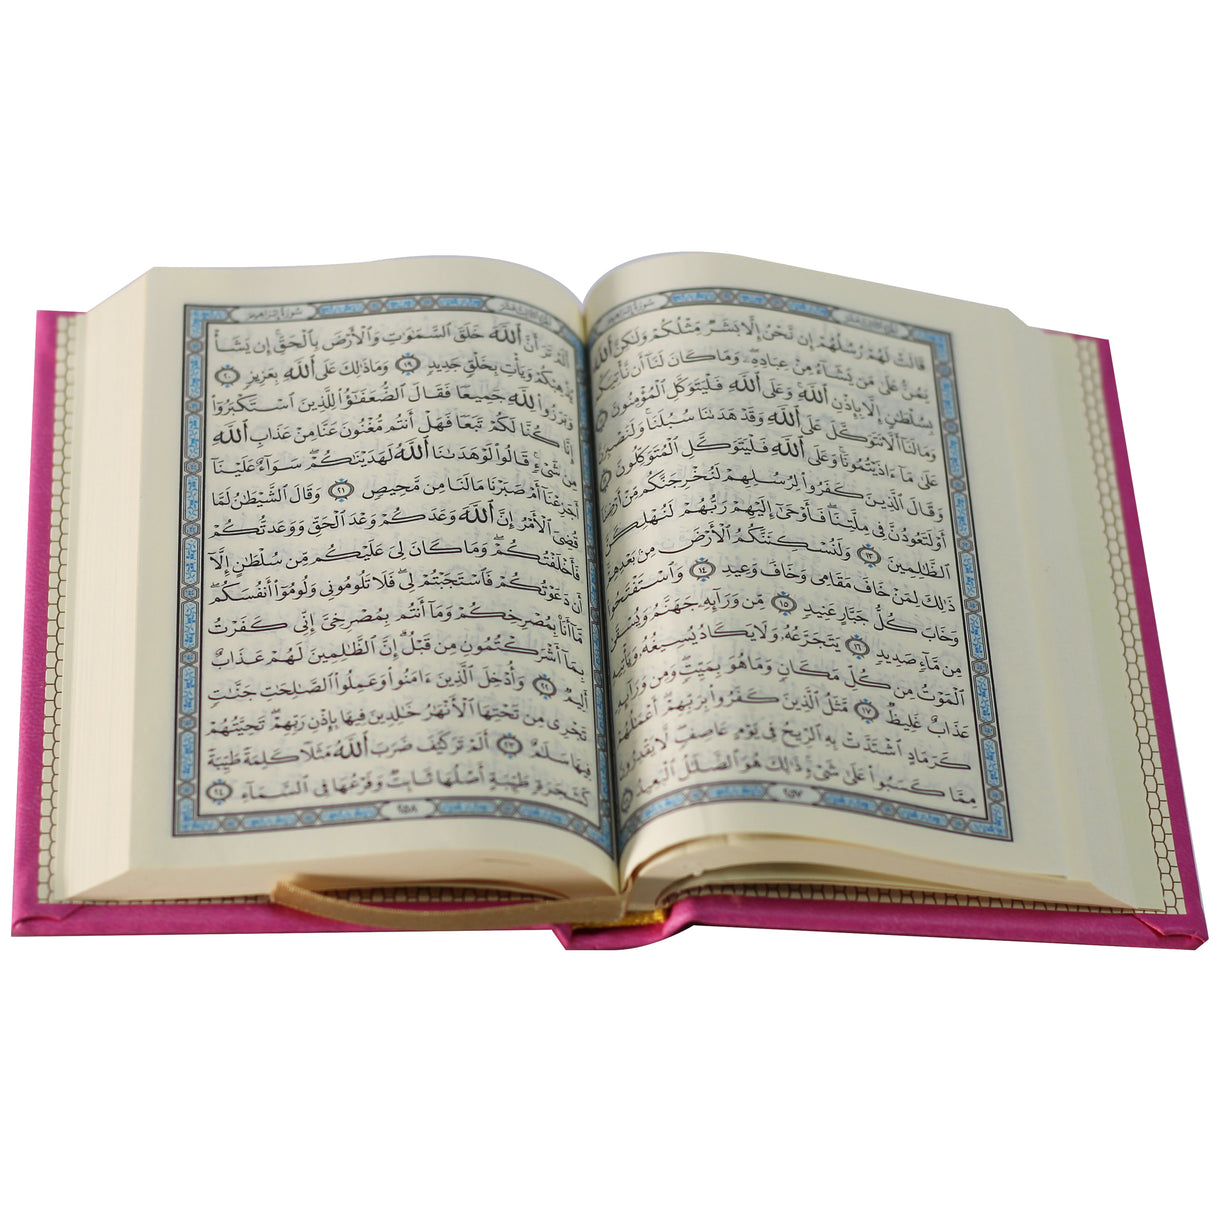 سُورَةُ إِبْرَاهِيمَ
قَالَتْ لَهُمْ رُسُلُهُمْ إِن نَّحْنُ إِلَّا بَشَرٌ مِّثْلُكُمْ وَلَٰكِنَّ ٱللَّهَ
يَمُنُّ عَلَىٰ مَن يَشَآءُ مِنْ عِبَادِهِۦۖ وَمَا كَانَ لَنَآ أَن نَّأْتِيَكُم
بِسُلْطَٰنٍ إِلَّا بِإِذْنِ ٱللَّهِۚ وَعَلَى ٱللَّهِ فَلْيَتَوَكَّلِ ٱلْمُؤْمِنُونَ
وَمَا لَنَآ أَلَّا نَتَوَكَّلَ عَلَى ٱللَّهِ وَقَدْ هَدَىٰنَا سُبُلَنَاۚ وَلَنَصْبِرَنَّ
عَلَىٰ مَآ ءَاذَيْتُمُونَاۚ وَعَلَى ٱللَّهِ فَلْيَتَوَكَّلِ ٱلْمُتَوَكِّلُونَ
وَقَالَ ٱلَّذِينَ كَفَرُوا۟ لِرُسُلِهِمْ لَنُخْرِجَنَّكُم مِّنْ أَرْضِنَآ
أَوْ لَتَعُودُنَّ فِى مِلَّتِنَاۖ فَأَوْحَىٰٓ إِلَيْهِمْ رَبُّهُمْ لَنُهْلِكَنَّ
ٱلظَّٰلِمِينَ ١٣ وَلَنُسْكِنَنَّكُمُ ٱلْأَرْضَ مِنۢ بَعْدِهِمْۚ
ذَٰلِكَ لِمَنْ خَافَ مَقَامِى وَخَافَ وَعِيدِ ١٤ وَٱسْتَفْتَحُوا۟
وَخَابَ كُلُّ جَبَّارٍ عَنِيدٍ ١٥ مِّن وَرَآئِهِۦ جَهَنَّمُ وَيُسْقَىٰ
مِن مَّآءٍ صَدِيدٍ ١٦ يَتَجَرَّعُهُۥ وَلَا يَكَادُ يُسِيغُهُۥ وَيَأْتِيهِ
ٱلْمَوْتُ مِن كُلِّ مَكَانٍ وَمَا هُوَ بِمَيِّتٍۖ وَمِن وَرَآئِهِۦ
عَذَابٌ غَلِيظٌ ١٧ مَّثَلُ ٱلَّذِينَ كَفَرُوا۟ بِرَبِّهِمْۖ أَعْمَٰلُهُمْ
كَرَمَادٍ ٱشْتَدَّتْ بِهِ ٱلرِّيحُ فِى يَوْمٍ عَاصِفٍۖ لَّا يَقْدِرُونَ
مِمَّا كَسَبُوا۟ عَلَىٰ شَىْءٍۚ ذَٰلِكَ هُوَ ٱلضَّلَٰلُ ٱلْبَعِيدُ
٢٥٧
سُورَةُ إِبْرَاهِيمَ
أَلَمْ تَرَ أَنَّ ٱللَّهَ خَلَقَ ٱلسَّمَٰوَٰتِ وَٱلْأَرْضَ بِٱلْحَقِّۚ إِن يَشَأْ
يُذْهِبْكُمْ وَيَأْتِ بِخَلْقٍ جَدِيدٍ ١٩ وَمَا ذَٰلِكَ عَلَى ٱللَّهِ بِعَزِيزٍ ٢٠
وَبَرَزُوا۟ لِلَّهِ جَمِيعًا فَقَالَ ٱلضُّعَفَٰٓؤُا۟ لِلَّذِينَ ٱسْتَكْبَرُوٓا۟
إِنَّا كُنَّا لَكُمْ تَبَعًا فَهَلْ أَنتُم مُّغْنُونَ عَنَّا مِنْ عَذَابِ ٱللَّهِ
مِن شَىْءٍۚ قَالُوا۟ لَوْ هَدَىٰنَا ٱللَّهُ لَهَدَيْنَٰكُمْۖ سَوَآءٌ عَلَيْنَآ
أَجَزِعْنَآ أَمْ صَبَرْنَا مَا لَنَا مِن مَّحِيصٍ ٢١ وَقَالَ ٱلشَّيْطَٰنُ لَمَّا
قُضِىَ ٱلْأَمْرُ إِنَّ ٱللَّهَ وَعَدَكُمْ وَعْدَ ٱلْحَقِّ وَوَعَدتُّكُمْ
فَأَخْلَفْتُكُمْۖ وَمَا كَانَ لِىَ عَلَيْكُم مِّن سُلْطَٰنٍ إِلَّآ
أَن دَعَوْتُكُمْ فَٱسْتَجَبْتُمْ لِىۖ فَلَا تَلُومُونِى وَلُومُوٓا۟ أَنفُسَكُمۖ
مَّآ أَنَا۠ بِمُصْرِخِكُمْ وَمَآ أَنتُم بِمُصْرِخِىَّۖ إِنِّى كَفَرْتُ
بِمَآ أَشْرَكْتُمُونِ مِن قَبْلُۗ إِنَّ ٱلظَّٰلِمِينَ لَهُمْ عَذَابٌ
أَلِيمٌ ٢٢ وَأُدْخِلَ ٱلَّذِينَ ءَامَنُوا۟ وَعَمِلُوا۟ ٱلصَّٰلِحَٰتِ جَنَّٰتٍ
تَجْرِى مِن تَحْتِهَا ٱلْأَنْهَٰرُ خَٰلِدِينَ فِيهَا بِإِذْنِ رَبِّهِمْۖ تَحِيَّتُهُمْ
فِيهَا سَلَٰمٌ ٢٣ أَلَمْ تَرَ كَيْفَ ضَرَبَ ٱللَّهُ مَثَلًا كَلِمَةً طَيِّبَةً
كَشَجَرَةٍ طَيِّبَةٍ أَصْلُهَا ثَابِتٌ وَفَرْعُهَا فِى ٱلسَّمَآءِ ٢٤
٢٥٨